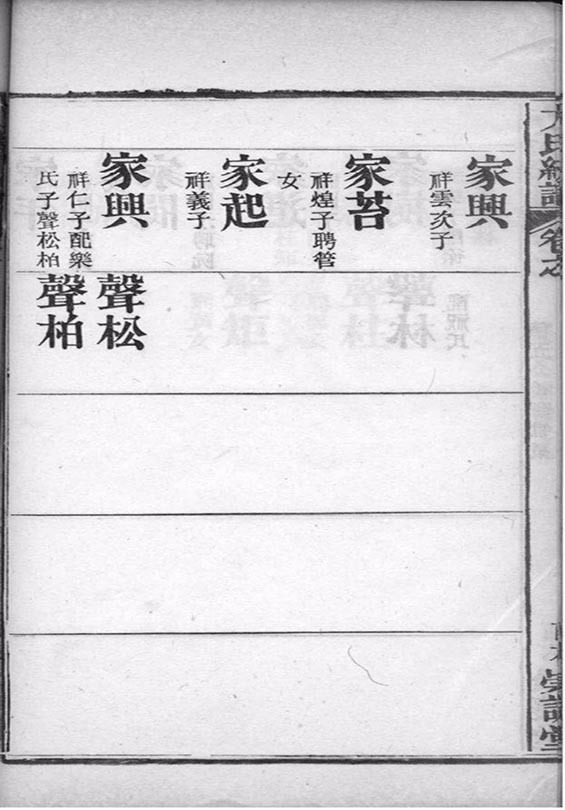 家興
祥雲次子
家苔
祥煌子聘管
女
家起
祥義子
家興
祥仁子配樂
氏子聲松柏
聲松
聲柏